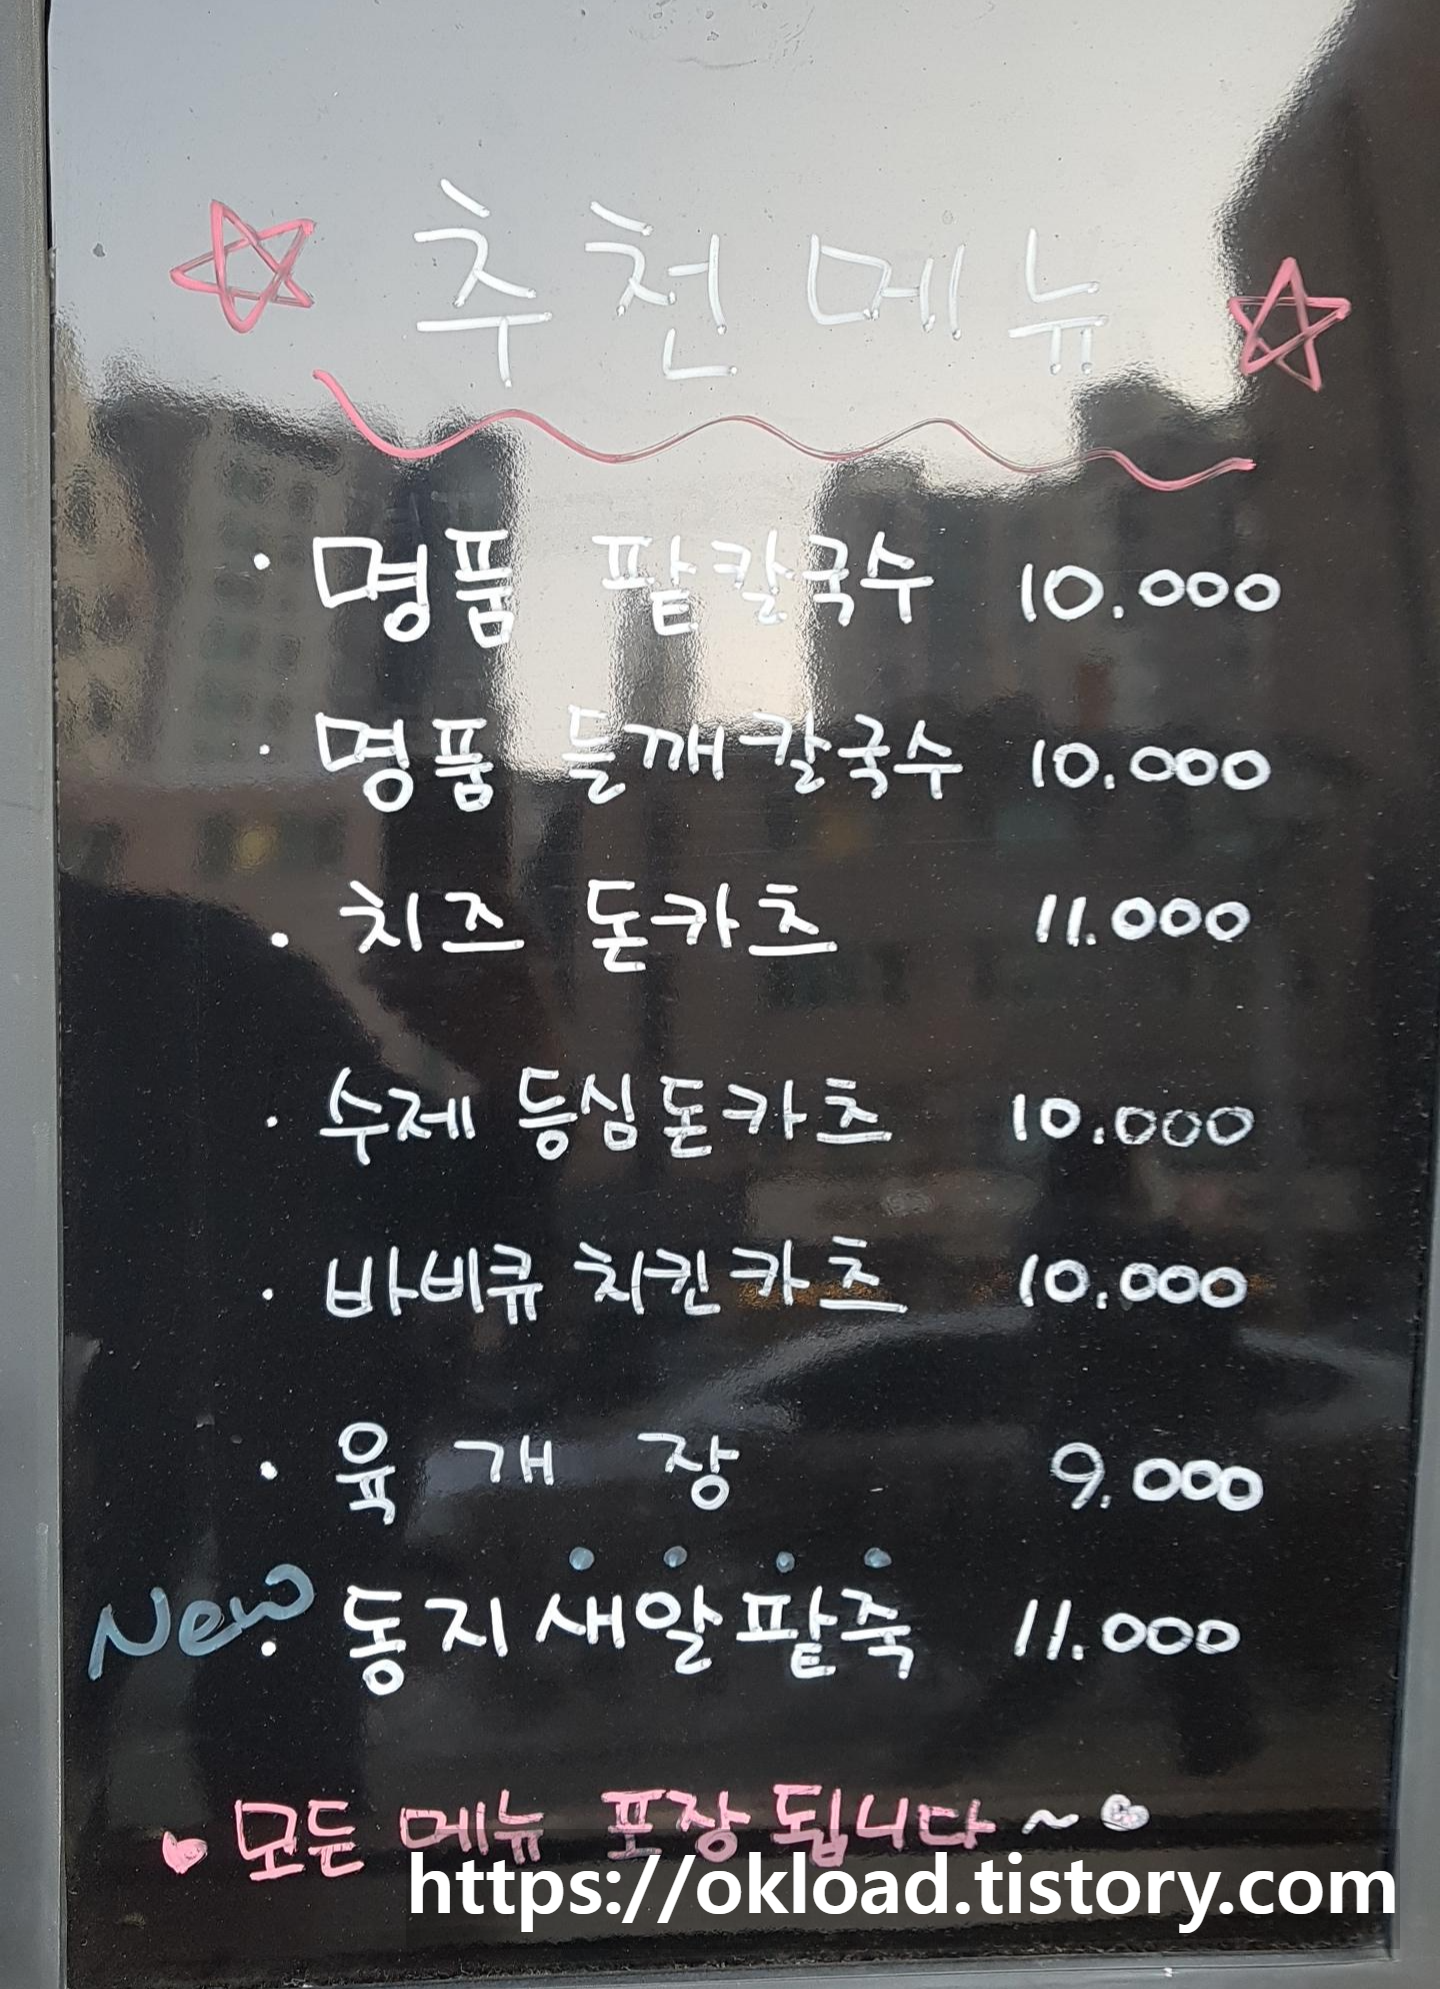 추천메뉴
· 명품 팥칼국수 10.000
· 명품 들깨칼국수 10.000
· 치즈 돈카츠 11.000
· 수제 등심돈카츠 10.000
· 바비큐 치킨카츠 10.000
· 육개장 9.000
New · 동지새알팥죽 11.000
♥ 모든 메뉴 포장됩니다~♥
https://okload.tistory.com